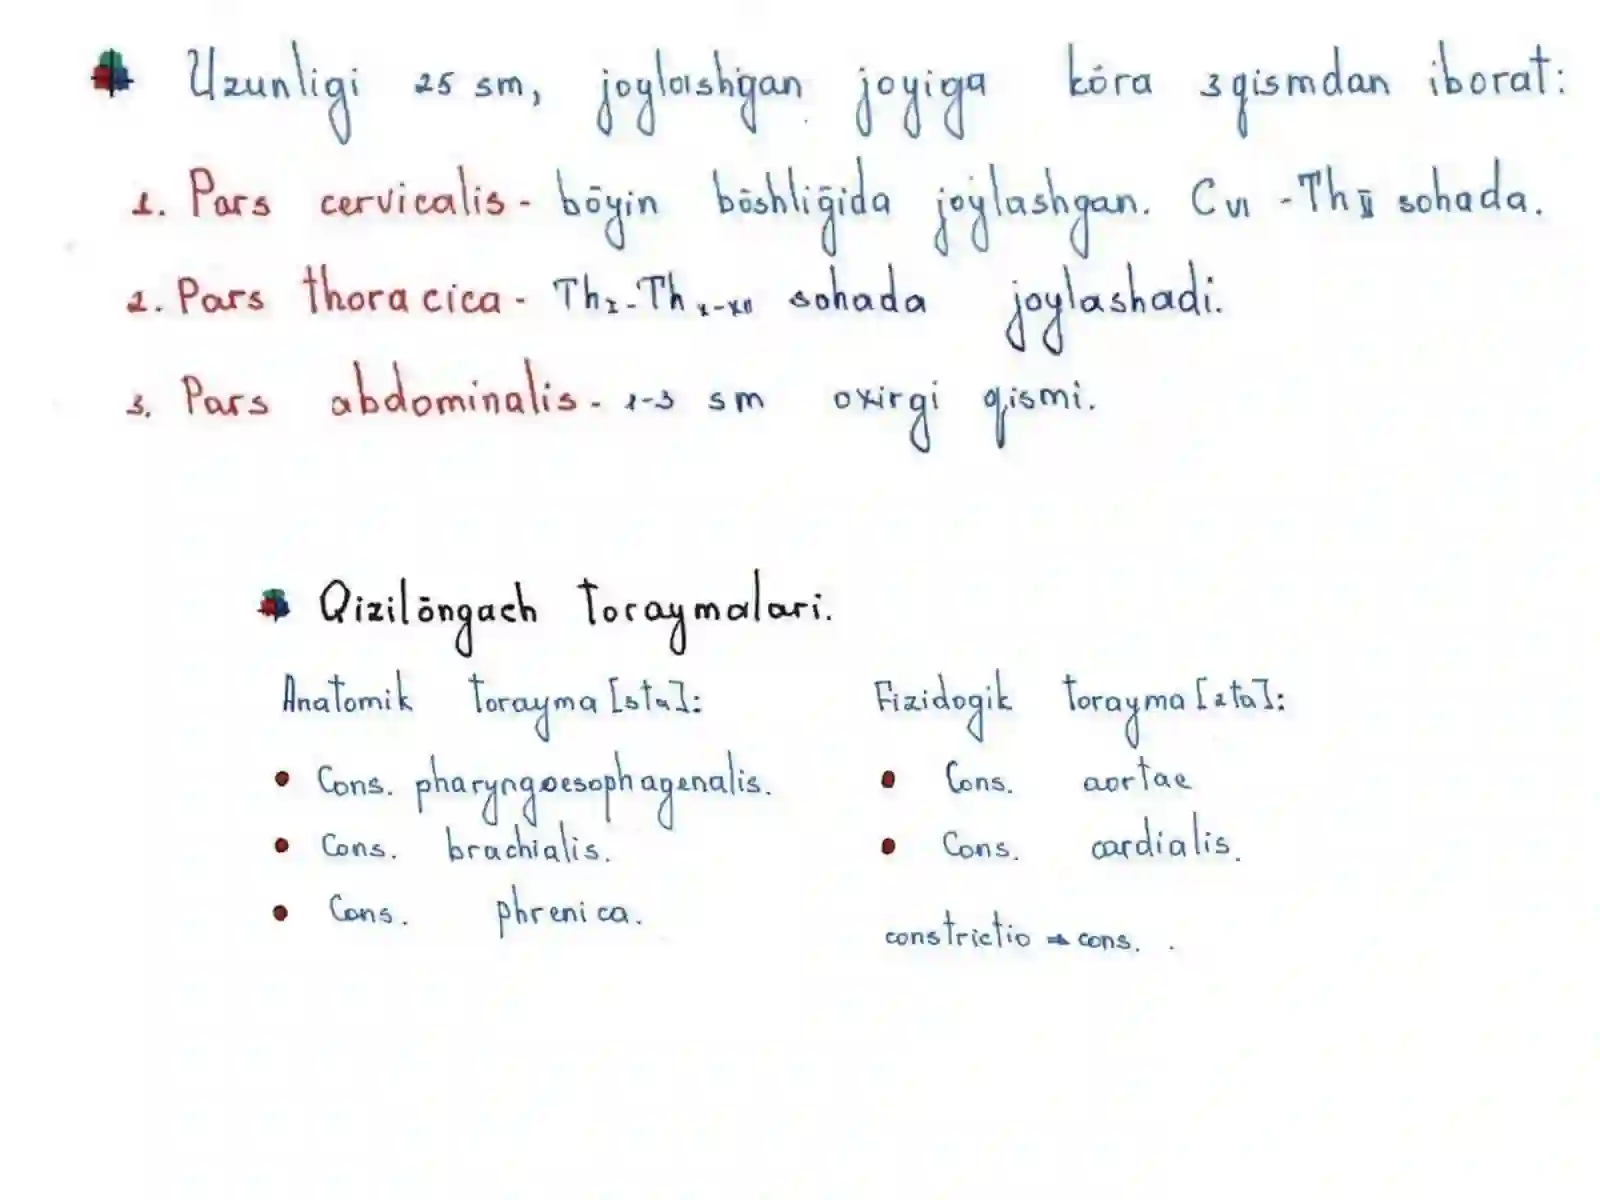 Uzunligi 25 sm, joylashgan joyiga kōra 3 qismdan iborat:
1. Pars cervicalis - bōyin bōshliḡida joylashgan. C VI - Th II sohada.
2. Pars thoracica - Th I - Th X-XII sohada joylashadi.
3. Pars abdominalis - 1-3 sm oxirgi qismi.
Qizilōngach toraymalari.
Anatomik torayma [3ta]:
Cons. pharyngoesophagenalis.
Cons. brachialis.
Cons. phrenica.
Fizidogik torayma [2ta]:
Cons. aortae
Cons. cardialis.
constrictio ⇒ cons.